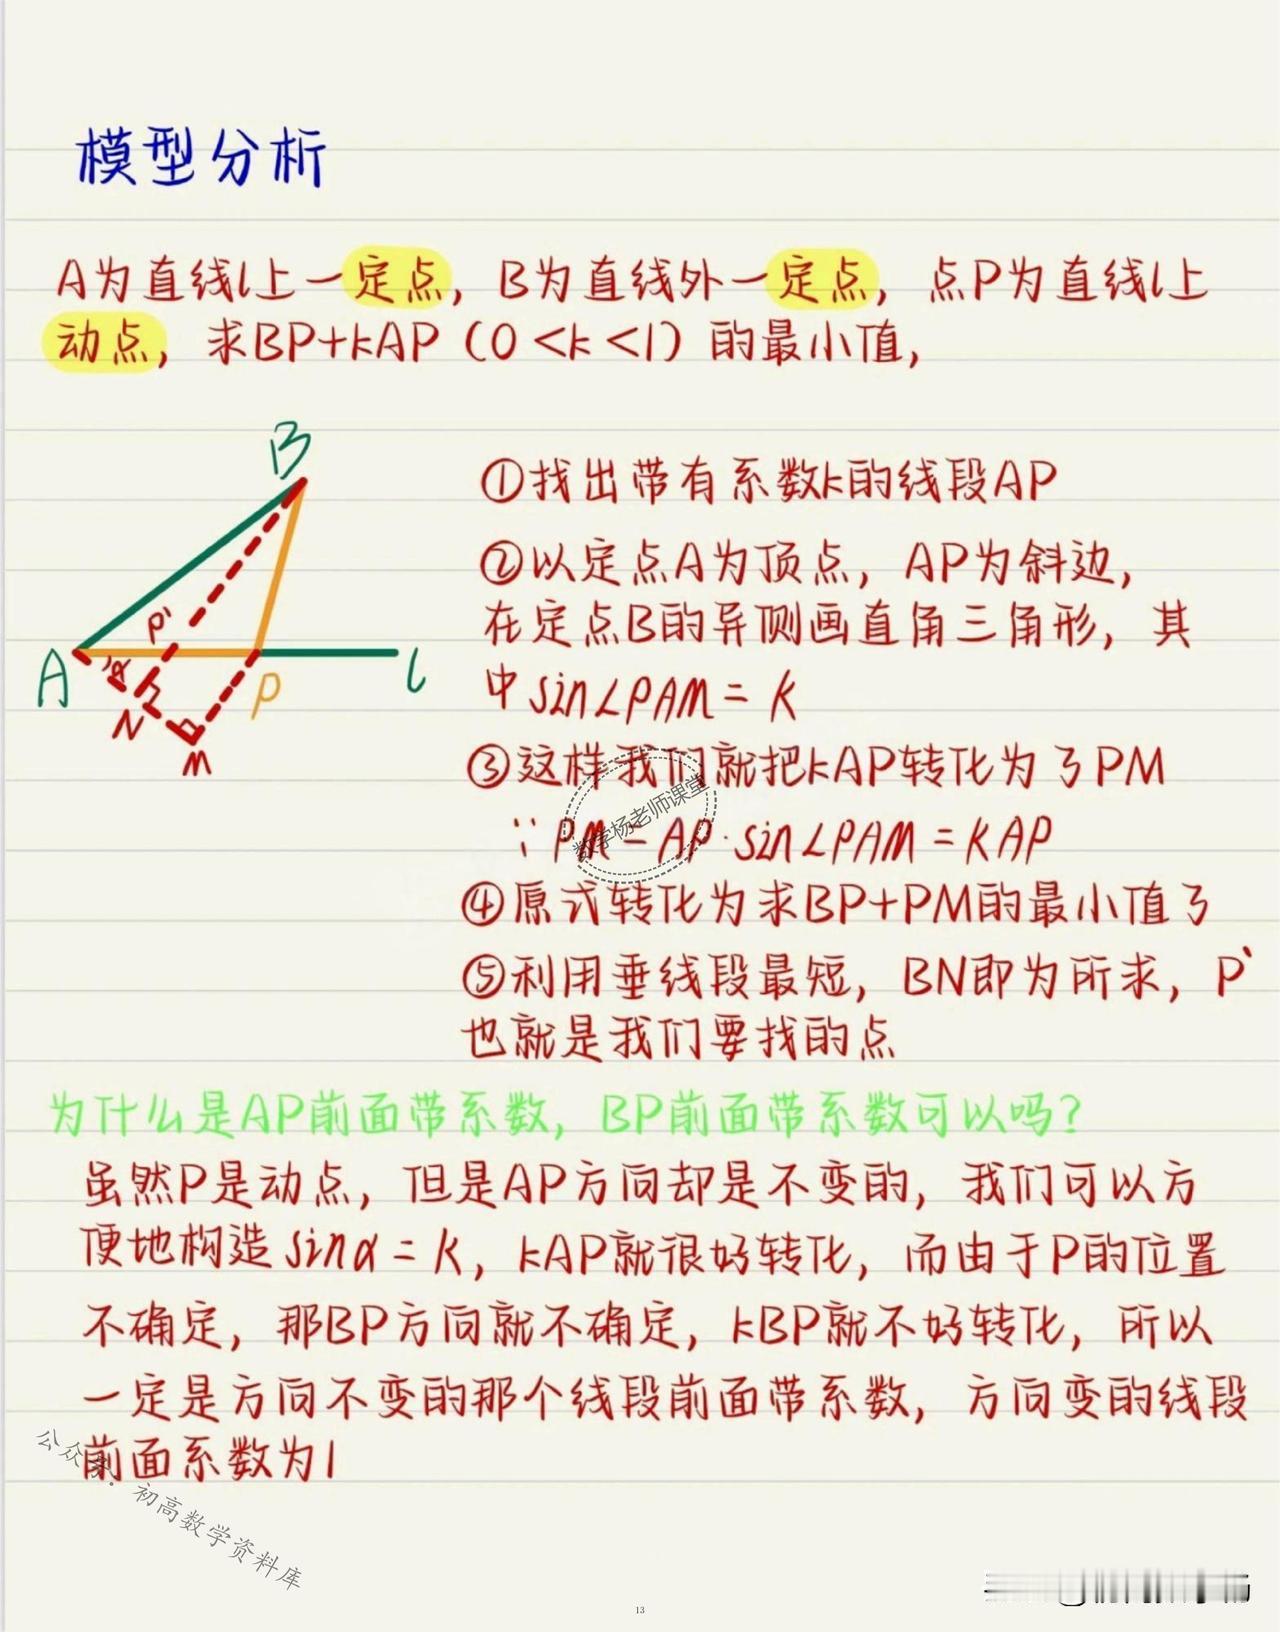 模型分析
A为直线l上一定点，B为直线外一定点，点P为直线l上
动点，求BP+kAP（0<k<1）的最小值，
B
A
P'
α
N
M
P
l
①找出带有系数k的线段AP
②以定点A为顶点，AP为斜边，
在定点B的异侧画直角三角形，其
中sin∠PAM=k
③这样我们就把kAP转化为了PM
∵PM=AP·sin∠PAM=KAP
数学杨老师课堂
④原式转化为求BP+PM的最小值了
⑤利用垂线段最短，BN即为所求，P`
也就是我们要找的点
为什么是AP前面带系数，BP前面带系数可以吗？
虽然P是动点，但是AP方向却是不变的，我们可以方
便地构造sinα=k，kAP就很好转化，而由于P的位置
不确定，那BP方向就不确定，kBP就不好转化，所以
一定是方向不变的那个线段前面带系数，方向变的线段
前面系数为1
公众号：初高数学资料库
13